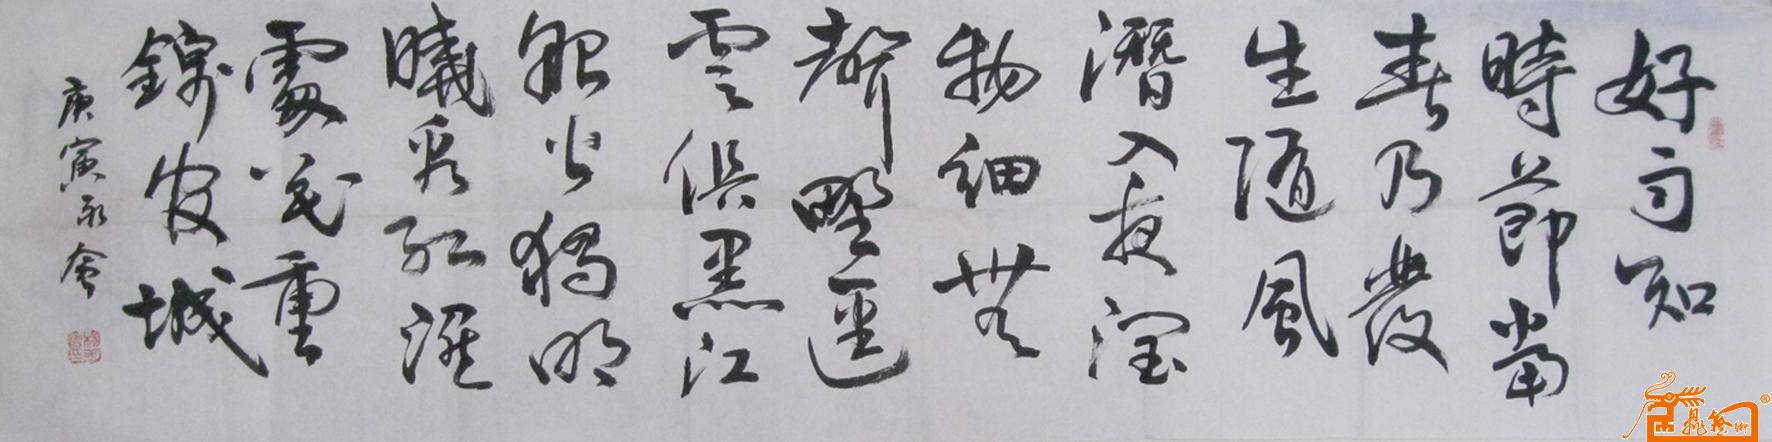 好雨知
時節當
春乃發
生隨風
潛入夜潤
物細無
聲野逕
雲俱黑江
船火獨明
曉看紅濕
處花重
錦官城
庚寅永